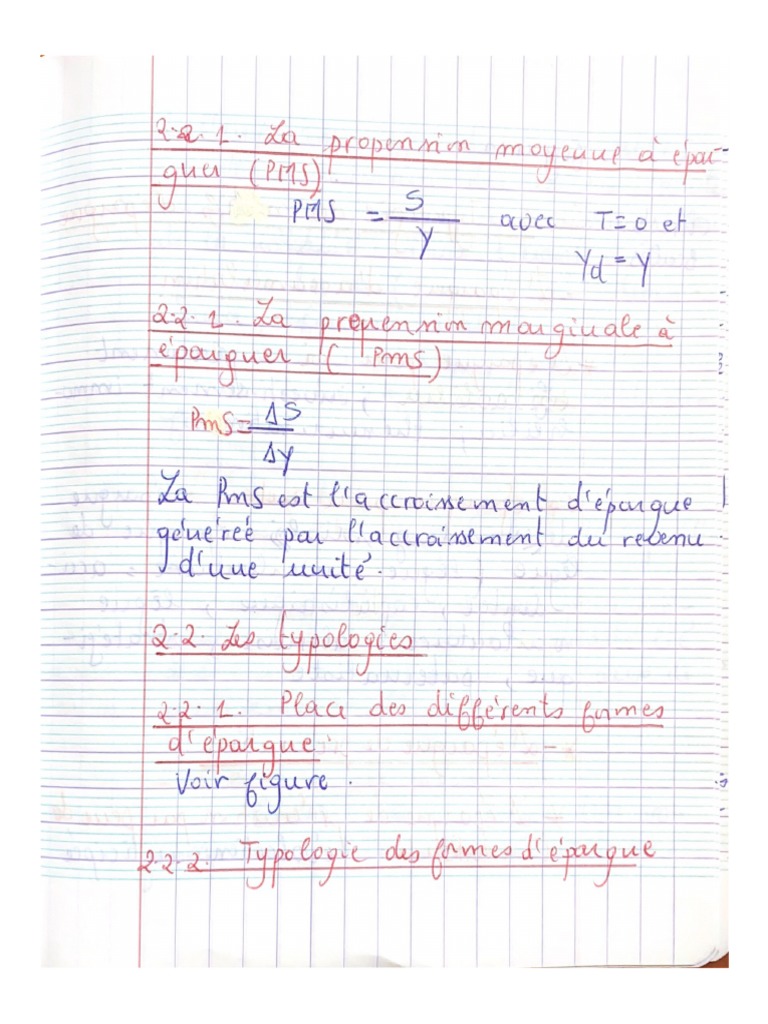 2.2.1. La propension moyenne à épar-
gner (PMS)
PMS = S / Y avec T=0 et
Yd = Y
2.2.1. La propension marginale à
épargner (PmS)
PmS = ΔS / ΔY
La PmS est l'accroissement d'épargne
générée par l'accroissement du revenu
d'une unité.
2.2. Les typologies
2.2.1. Place des différents formes
d'épargne.
Voir figure.
2.2.2. Typologie des formes d'épargne